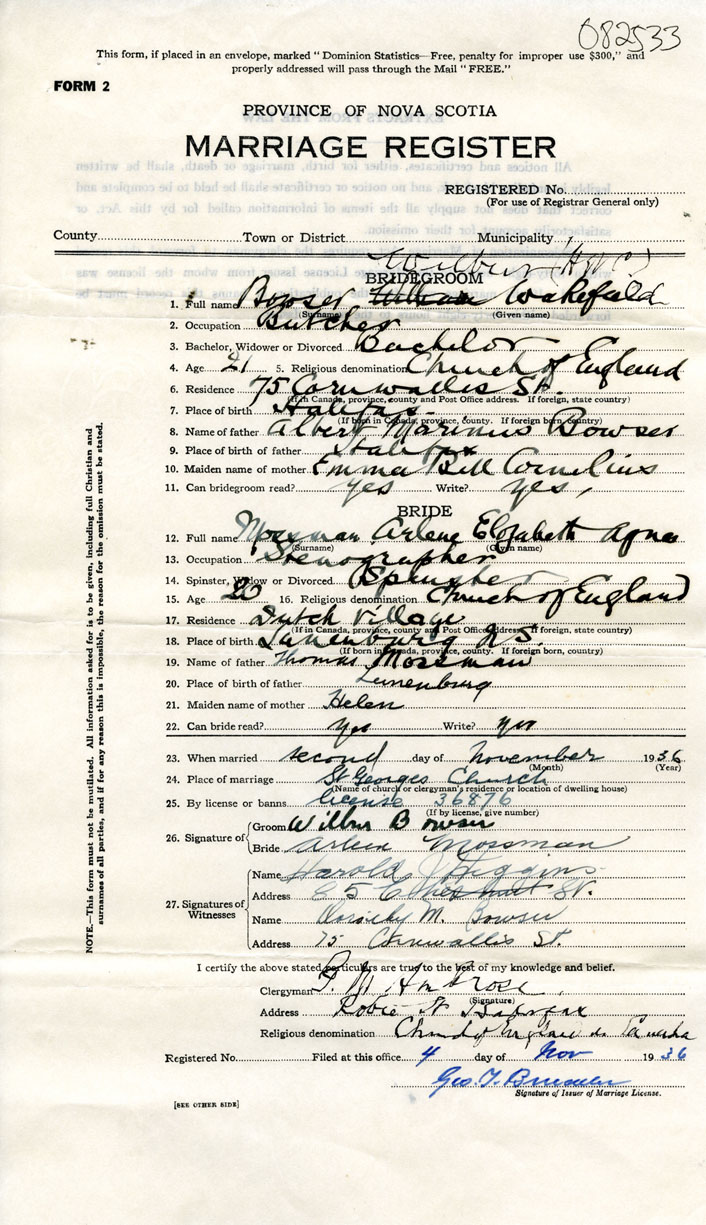 082533
This form, if placed in an envelope, marked "Dominion Statistics—Free, penalty for improper use $300," and
properly addressed will pass through the Mail "FREE."
FORM 2
PROVINCE OF NOVA SCOTIA
MARRIAGE REGISTER
REGISTERED No.
(For use of Registrar General only)
County Town or District Municipality
Wilbur (H.W.C.)
BRIDEGROOM
1. Full name Bowser Wakefield
(Surname) (Given name)
2. Occupation Butcher
3. Bachelor, Widower or Divorced Bachelor
4. Age 21 5. Religious denomination Church of England
6. Residence 75 Cornwallis St.
(If in Canada, province, county and Post Office address. If foreign, state country)
7. Place of birth Halifax
(If born in Canada, province, county. If foreign born, country)
8. Name of father Albert Marinus Bowser
9. Place of birth of father Halifax
10. Maiden name of mother Emma Bell Cornelius
11. Can bridegroom read? yes Write? yes,
BRIDE
12. Full name Mossman Arlene Elizabeth Agnes
(Surname) (Given name)
13. Occupation Stenographer
14. Spinster, Widow or Divorced (Spinster
15. Age 20 16. Religious denomination Church of England
17. Residence Dutch Village
(If in Canada, province, county and Post Office address. If foreign, state country)
18. Place of birth Lunenburg N.S.
(If born in Canada, province, county. If foreign born, country)
19. Name of father Thomas Mossman
20. Place of birth of father Lunenburg
21. Maiden name of mother Helen
22. Can bride read? Yes Write? Yes
23. When married second day of November 1936
(Month) (Year)
24. Place of marriage St Georges Church
(Name of church or clergyman's residence or location of dwelling house)
25. By license or banns license 36876
(If by license, give number)
26. Signature of
Groom Wilbur Bowser
Bride Arleen Mossman
27. Signatures of Witnesses
Name Harold J Higgins
Address 85 St.
Name Dorothy M. Bowser
Address 75 Cornwallis St.
I certify the above stated particulars are true to the best of my knowledge and belief.
Clergyman Ambrose
(Signature)
Address Robie St Halifax
Religious denomination Church of England in Canada
Registered No. Filed at this office 4 day of Nov 1936
Geo. T.
Signature of Issuer of Marriage License.
[SEE OTHER SIDE]
NOTE.—This form must not be mutilated. All information asked for is to be given, including full Christian and
surnames of all parties, and if for any reason this is impossible, the reason for the omission must be stated.